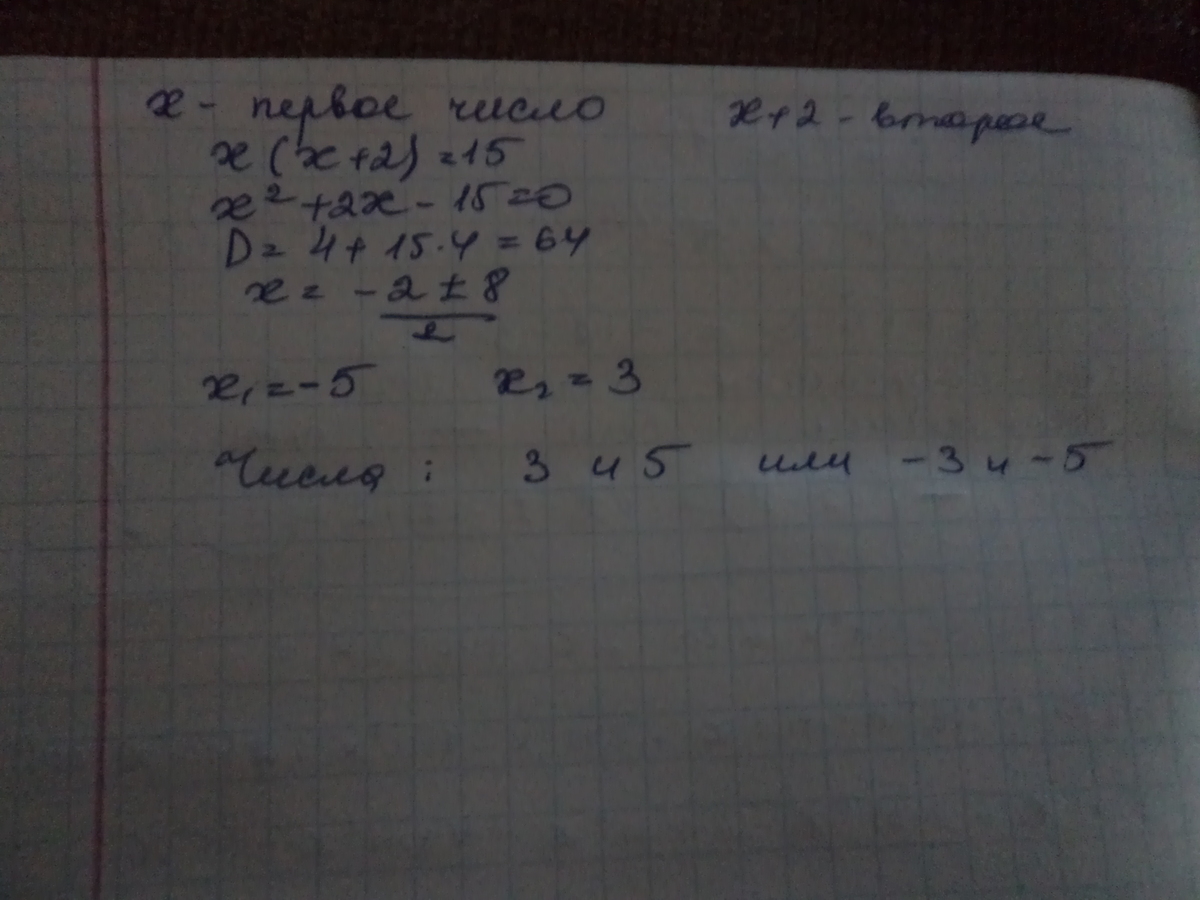 x - первое число x+2 - второе
x (x+2) = 15
x² + 2x - 15 = 0
D = 4 + 15·4 = 64
x = -2 ± 8
2
x₁ = -5 x₂ = 3
Числа : 3 и 5 или -3 и -5